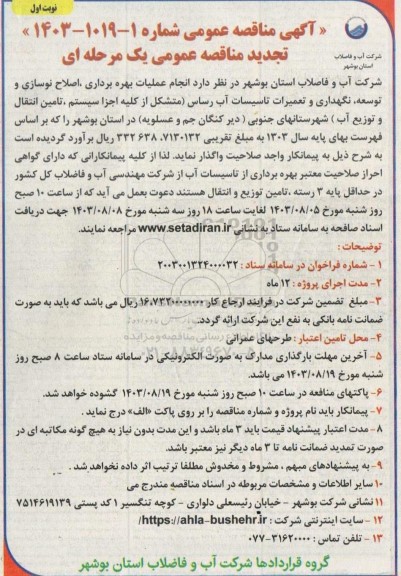 نوبت اول
« آگهی مناقصه عمومی شماره ۱-۱۰۱۹-۱۴۰۳ »
تجدید مناقصه عمومی یک مرحله ای
شرکت آب و فاضلاب
استان بوشهر
شرکت آب و فاضلاب استان بوشهر در نظر دارد انجام عملیات بهره برداری ،اصلاح نوسازی و
توسعه، نگهداری و تعمیرات تاسیسات آب رساس (متشکل از کلیه اجزا سیستم ،تامین انتقال
و توزیع آب ) شهرستانهای جنوبی ( دیر کنگان جم و عسلویه) در استان بوشهر را که بر اساس
فهرست بهای پایه سال ۱۴۰۳ به مبلغ تقریبی ۷,۷۱۳۰۱۳۲ ۶۳۸ ۳۳۲ ریال برآورد گردیده است
به شرح ذیل به پیمانکار واجد صلاحیت واگذار نماید. لذا از کلیه پیمانکارانی که دارای گواهی
احراز صلاحیت معتبر بهره برداری از تاسیسات آب از شرکت مهندسی آب و فاضلاب کل کشور
در حداقل پایه ۳ رسته ،تامین توزیع و انتقال هستند دعوت بعمل می آید که از ساعت ۱۰ صبح
روز شنبه مورخ ۱۴۰۳/۰۸/۰۵ لغایت ساعت ۱۸ روز سه شنبه مورخ ۱۴۰۳/۰۸/۰۸ جهت دریافت
اسناد صافحه به سامانه ستاد به نشانی www.setadiran.ir مراجعه نمایند.
توضیحات :
۱ - شماره فراخوان در سامانه ستاد : ۲۰۰۳۰۰۱۳۲۴۰۰۰۰۳۲
۲ - مدت اجرای پروژه : ۱۲ ماه
۳ - مبلغ تضمین شرکت در فرایند ارجاع کار ریال می باشد که باید به صورت
ضمانت نامه بانکی به نفع این شرکت ارائه گردد.
۴ - محل تامین اعتبار : طرحهای عمرانی
۵ - آخرین مهلت بارگذاری مدارک به صورت الکترونیکی در سامانه ستاد ساعت ۸ صبح روز
شنبه مورخ ۱۴۰۳/۰۸/۱۹ می باشد.
۶ - پاکتهای منافعه در ساعت ۱۰ صبح روز شنبه مورخ ۱۴۰۳/۰۸/۱۹ گشوده خواهد شد.
۷ - پیمانکار باید نام پروژه و شماره مناقصه را بر روی پاکت «الف» درج نماید .
۸ - مدت اعتبار پیشنهاد قیمت باید ۳ ماه باشد و این مدت بدون نیاز به هیچ گونه مکاتبه ای در
صورت تمدید ضمانت نامه تا ۳ ماه دیگر نیز معتبر باشد.
۹ - به پیشنهادهای مبهم ، مشروط و مخدوش مطلقا ترتیب اثر داده نخواهد شد .
۱۰ - سایر اطلاعات و مشخصات مربوطه در اسناد مناقصه مندرج می
۱۱ - نشانی شرکت بوشهر - خیابان رئیسعلی دلواری - کوچه تنگسیر ۱ کد پستی ۷۵۱۴۶۱۹۱۳۹
۱۲ - سایت اینترنتی شرکت : https://ahla-bushehr.ir/
۱۳ - تلفن تماس : ۳۱۶۲۰۰۰۰-۰۷۷
گروه قراردادها شرکت آب و فاضلاب استان بوشهر